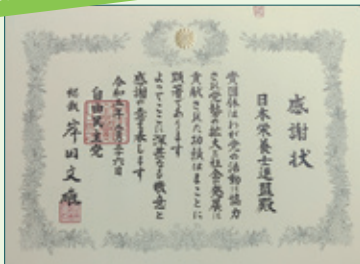 感謝状
日本栄養士連盟殿
貴団体はわが党の活動に協力
され党勢の拡大と社会の発展に
貢献された功績はまことに
顕著であります
よってここに深甚なる敬意と
感謝の意を表します
令和五年 月二十六日
自由民主党
総裁 岸田文雄